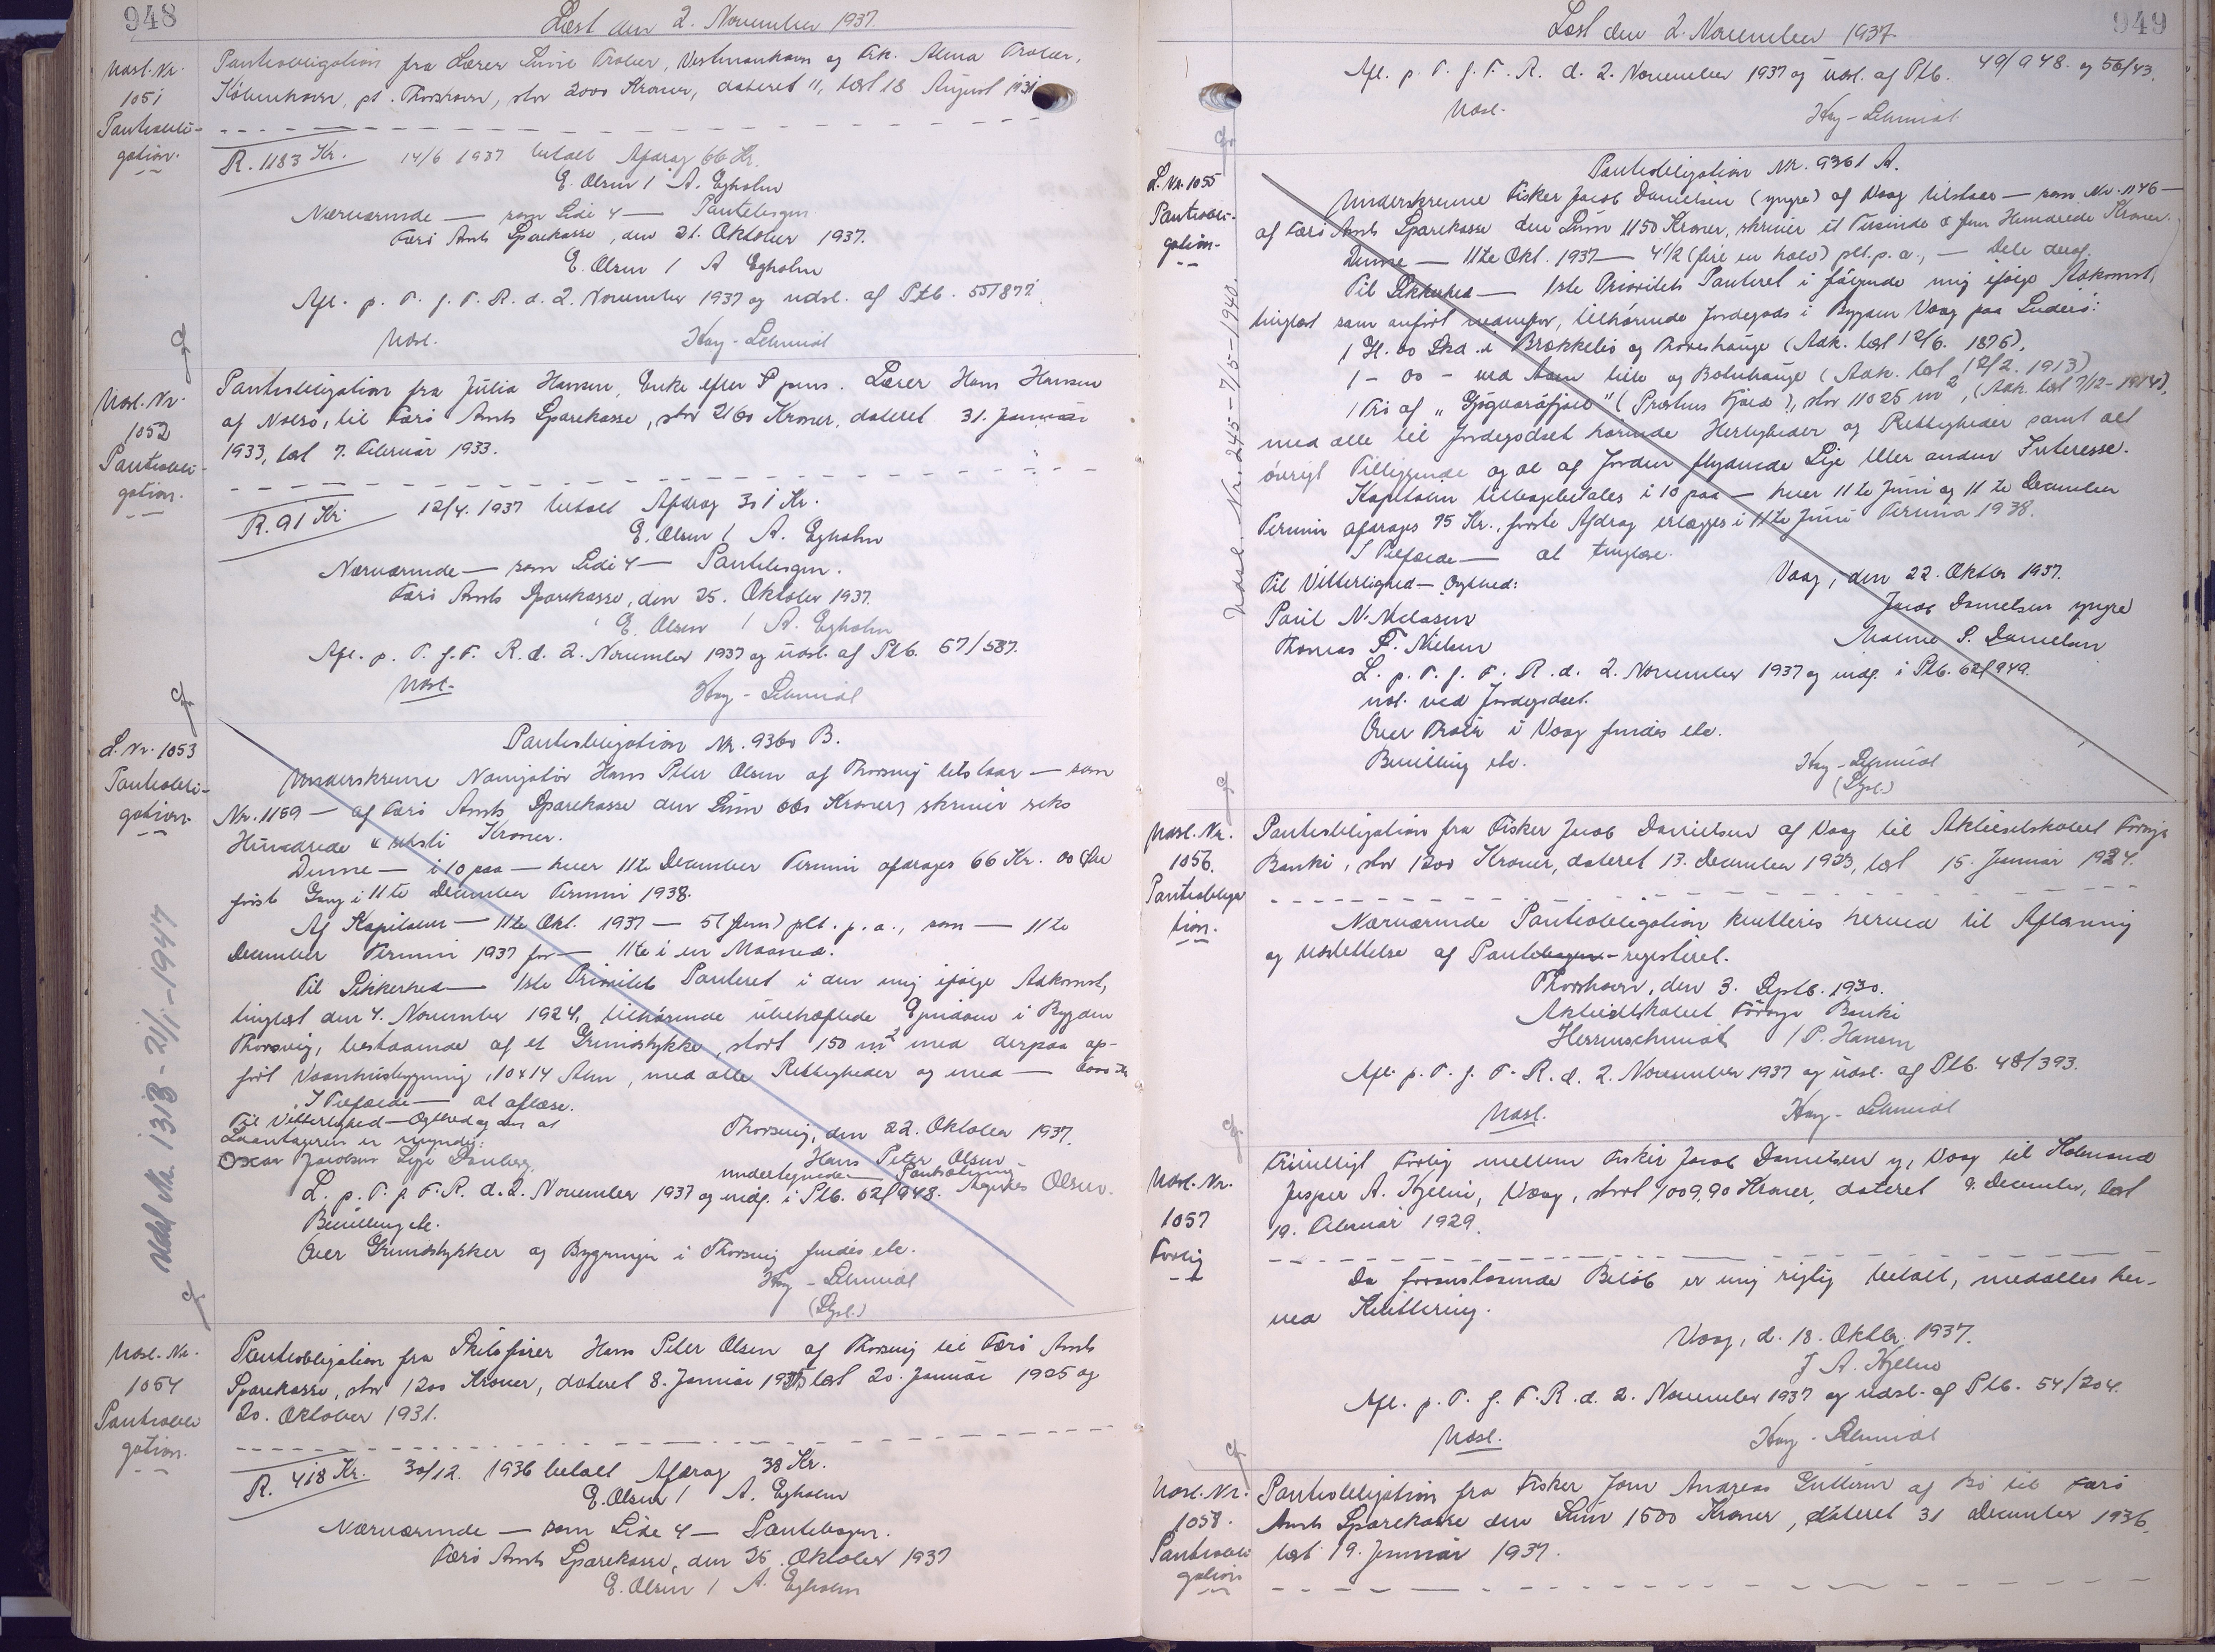 948
Læst den 2. November 1937.
Udsl. Nr.
1051
Pantobli-
gation.
Pantobligation fra Lærer Sune Trober, Vestmanhavn og Frk. Alma Trober,
København, pt. Thorshavn, stor 2000 Kroner, dateret 11, læst 18 August 1931
R. 1183 Kr. 14/6 1937 betalt Afdrag 66 Kr.
E. Olsen / A. Egholm
Nærværende — som Side 4 — Pantebogen.
Færø Amts Sparekasse, den 21. Oktober 1937.
E. Olsen / A Egholm
Afl. p. T. f. F. R. d. 2. November 1937 og udsl. af Ptb. 55/877.
Udsl. Høy-Schmidt
Udsl. Nr.
1052
Pantobli-
gation.
Pantobligation fra Julia Hansen, Enke efter pens. Lærer Hans Hansen
af Nolsø, til Færø Amts Sparekasse, stor 2160 Kroner, dateret 31. Januar
1933, læst 7. Februar 1933.
R. 91 Kr. 12/4. 1937 betalt Afdrag 301 Kr.
E. Olsen / A. Egholm
Nærværende — som Side 4 — Pantebogen.
Færø Amts Sparekasse, den 25. Oktober 1937.
E. Olsen / A. Egholm
Afl. p. T. f. F. R. d. 2. November 1937 og udsl. af Ptb. 57/587.
Udsl. Høy-Schmidt
L. Nr. 1053
Pantobli-
gation.
Udsl. Nr. 131B - 21/1-1947
Pantobligation Nr. 9360 B.
Underskrevne Navigatør Hans Peter Olsen af Thorsvig tilstaar — som
Nr. 1159 — af Færø Amts Sparekasse den Sum 660 Kroner, skriver seks
Hundrede & seksti Kroner.
Denne — i 10 paa — hver 11te December Termin afdrages 66 Kr. 00 Øre
første Gang i 11te December Termin 1938.
Af Kapitalen — 11te Okt. 1937 — 5 (fem) pCt. p. a., som — 11te
December Termin 1937 for — 11te i en Maaned.
Til Sikkerhed — 1ste Prioritets Panteret i den mig ifølge Adkomst,
tinglæst den 4. November 1924, tilhørende ubehæftede Ejendom i Bygden
Thorsvig, bestaaende af et Grundstykke, stort 150 m² med derpaa op-
ført Vaaningsbygning, 10x14 Alen, med alle Rettigheder og med — 6000 Kr
I Tilfælde — at aflæse.
Til Vitterlighed — Ægthed og den at
Laantageren er myndig:
Oscar Jacobsen Sigi Danberg.
Thorsvig, den 22. Oktober 1937.
Hans Peter Olsen
undertegnede — Pantsætning
Agnes Olsen.
L. p. T. f. F. R. d. 2. November 1937 og indf. i Ptb. 62/948.
Bevilling etc.
Over Grundstykker og Bygninger i Thorsvig findes etc.
Høy-Schmidt
(Stpl.)
Udsl. Nr.
1054
Pantobli
gation.
Pantobligation fra Skibsfører Hans Peter Olsen af Thorsvig til Færø Amts
Sparekasse, stor 1200 Kroner, dateret 8. Januar 1925, læst 20. Januar 1925 og
20. Oktober 1931.
R. 418 Kr. 30/12. 1936 betalt Afdrag 38 Kr.
E. Olsen / A. Egholm
Nærværende — som Side 4 — Pantebogen.
Færø Amts Sparekasse, den 25. Oktober 1937
E. Olsen / A. Egholm
949
Læst den 2. November 1937
Afl. p. T. f. F. R. d. 2. November 1937 og udsl. af Ptb. 49/948. og 58/43.
Udsl. Høy-Schmidt
L. Nr. 1055
Pantobli-
gation-
Udsl. Nr. 245 - 7/5-1940.
Pantobligation Nr. 9361 A.
Underskrevne Fisker Jacob Danielsen (yngre) af Vaag tilstaar — som Nr. 1146 —
af Færø Amts Sparekasse den Sum 1150 Kroner, skriver et Tusinde & fem Hundrede Kroner.
Denne — 11te Okt. 1937 — 4½ (fire en halv) pCt. p. a., — Dele deraf.
Til Sikkerhed — 1ste Prioritets Panteret i følgende mig ifølge Adkomst,
tinglæst som anført nedenfor, tilhørende Jordegods i Bygden Vaag paa Suderø:
1 G. 00 Skd. i Brokkelsø og Thoveshauge (Adk. læst 12/6. 1876),
1 - 00 - ved Aaen lille og Bolshauge (Adk. læst 12/2. 1913)
1 Trø af „Gjøgvaråfjæll" (Præstens Fjæld), stor 11025 m², (Adk. læst 7/12-1914),
med alle til Jordegodset hørende Herligheder og Rettigheder samt alt
øvrigt Tilliggende og al af Jorden flydende Leje eller anden Interesse.
Kapitalen tilbagebetales i 10 paa — hver 11te Juni og 11te December
Termin afdrages 75 Kr., første Afdrag erlægges i 11te Juni Termin 1938.
I Tilfælde — at tinglæse.
Til Vitterlighed — Ægthed:
Vaag, den 22. Oktbr 1937.
Poul N. Nielsen
Jacob Danielsen yngre
Thomas F. Nielsen
Malene S. Danielsen
L. p. T. f. F. R. d. 2. November 1937 og indf. i Ptb. 62/949.
udl. ved Jordegodset.
Over Traðir i Vaag findes etc.
Bevilling etc.
Høy-Schmidt
(Stpl.)
Udsl. Nr.
1056.
Pantobliga
tion.
Pantobligation fra Fisker Jacob Danielsen af Vaag til Aktieselskabet Føroya
Banki, stor 1200 Kroner, dateret 13. December 1923, læst 15. Januar 1924.
Nærværende Pantobligation kvitteres herved til Aflæsning
og Udslettelse af Pantebogen-registeret.
Thorshavn, den 3. Septb. 1930.
Aktieselskabet Føroya Banki
Herrenschmidt / P. Hansen
Afl. p. T. f. F. R. d. 2. November 1937 og udsl. af Ptb. 48/393.
Udsl. Høy-Schmidt
Udsl. Nr.
1057
Forlig
Frivilligt Forlig mellem Fisker Jacob Danielsen y, Vaag til Købmand
Jesper A. Kjelnes, Vaag, stort 1009,90 Kroner, dateret 9. December, læst
19. Februar 1929.
Da foranstaaende Beløb er mig rigtig betalt, meddelles her-
ved Kvittering.
Vaag, d. 18. Oktbr. 1937.
J A. Kjelnes
Afl. p. T. f. F. R. d. 2. November 1937 og udsl. af Ptb. 54/204.
Udsl. Høy-Schmidt
Udsl. Nr.
1058.
Pantobli
gation
Pantobligation fra Fisker Joen Andreas Guttesen af Bø til Færø
Amts Sparekasse den Sum 1500 Kroner, dateret 31 December 1936,
læst 19. Januar 1937.